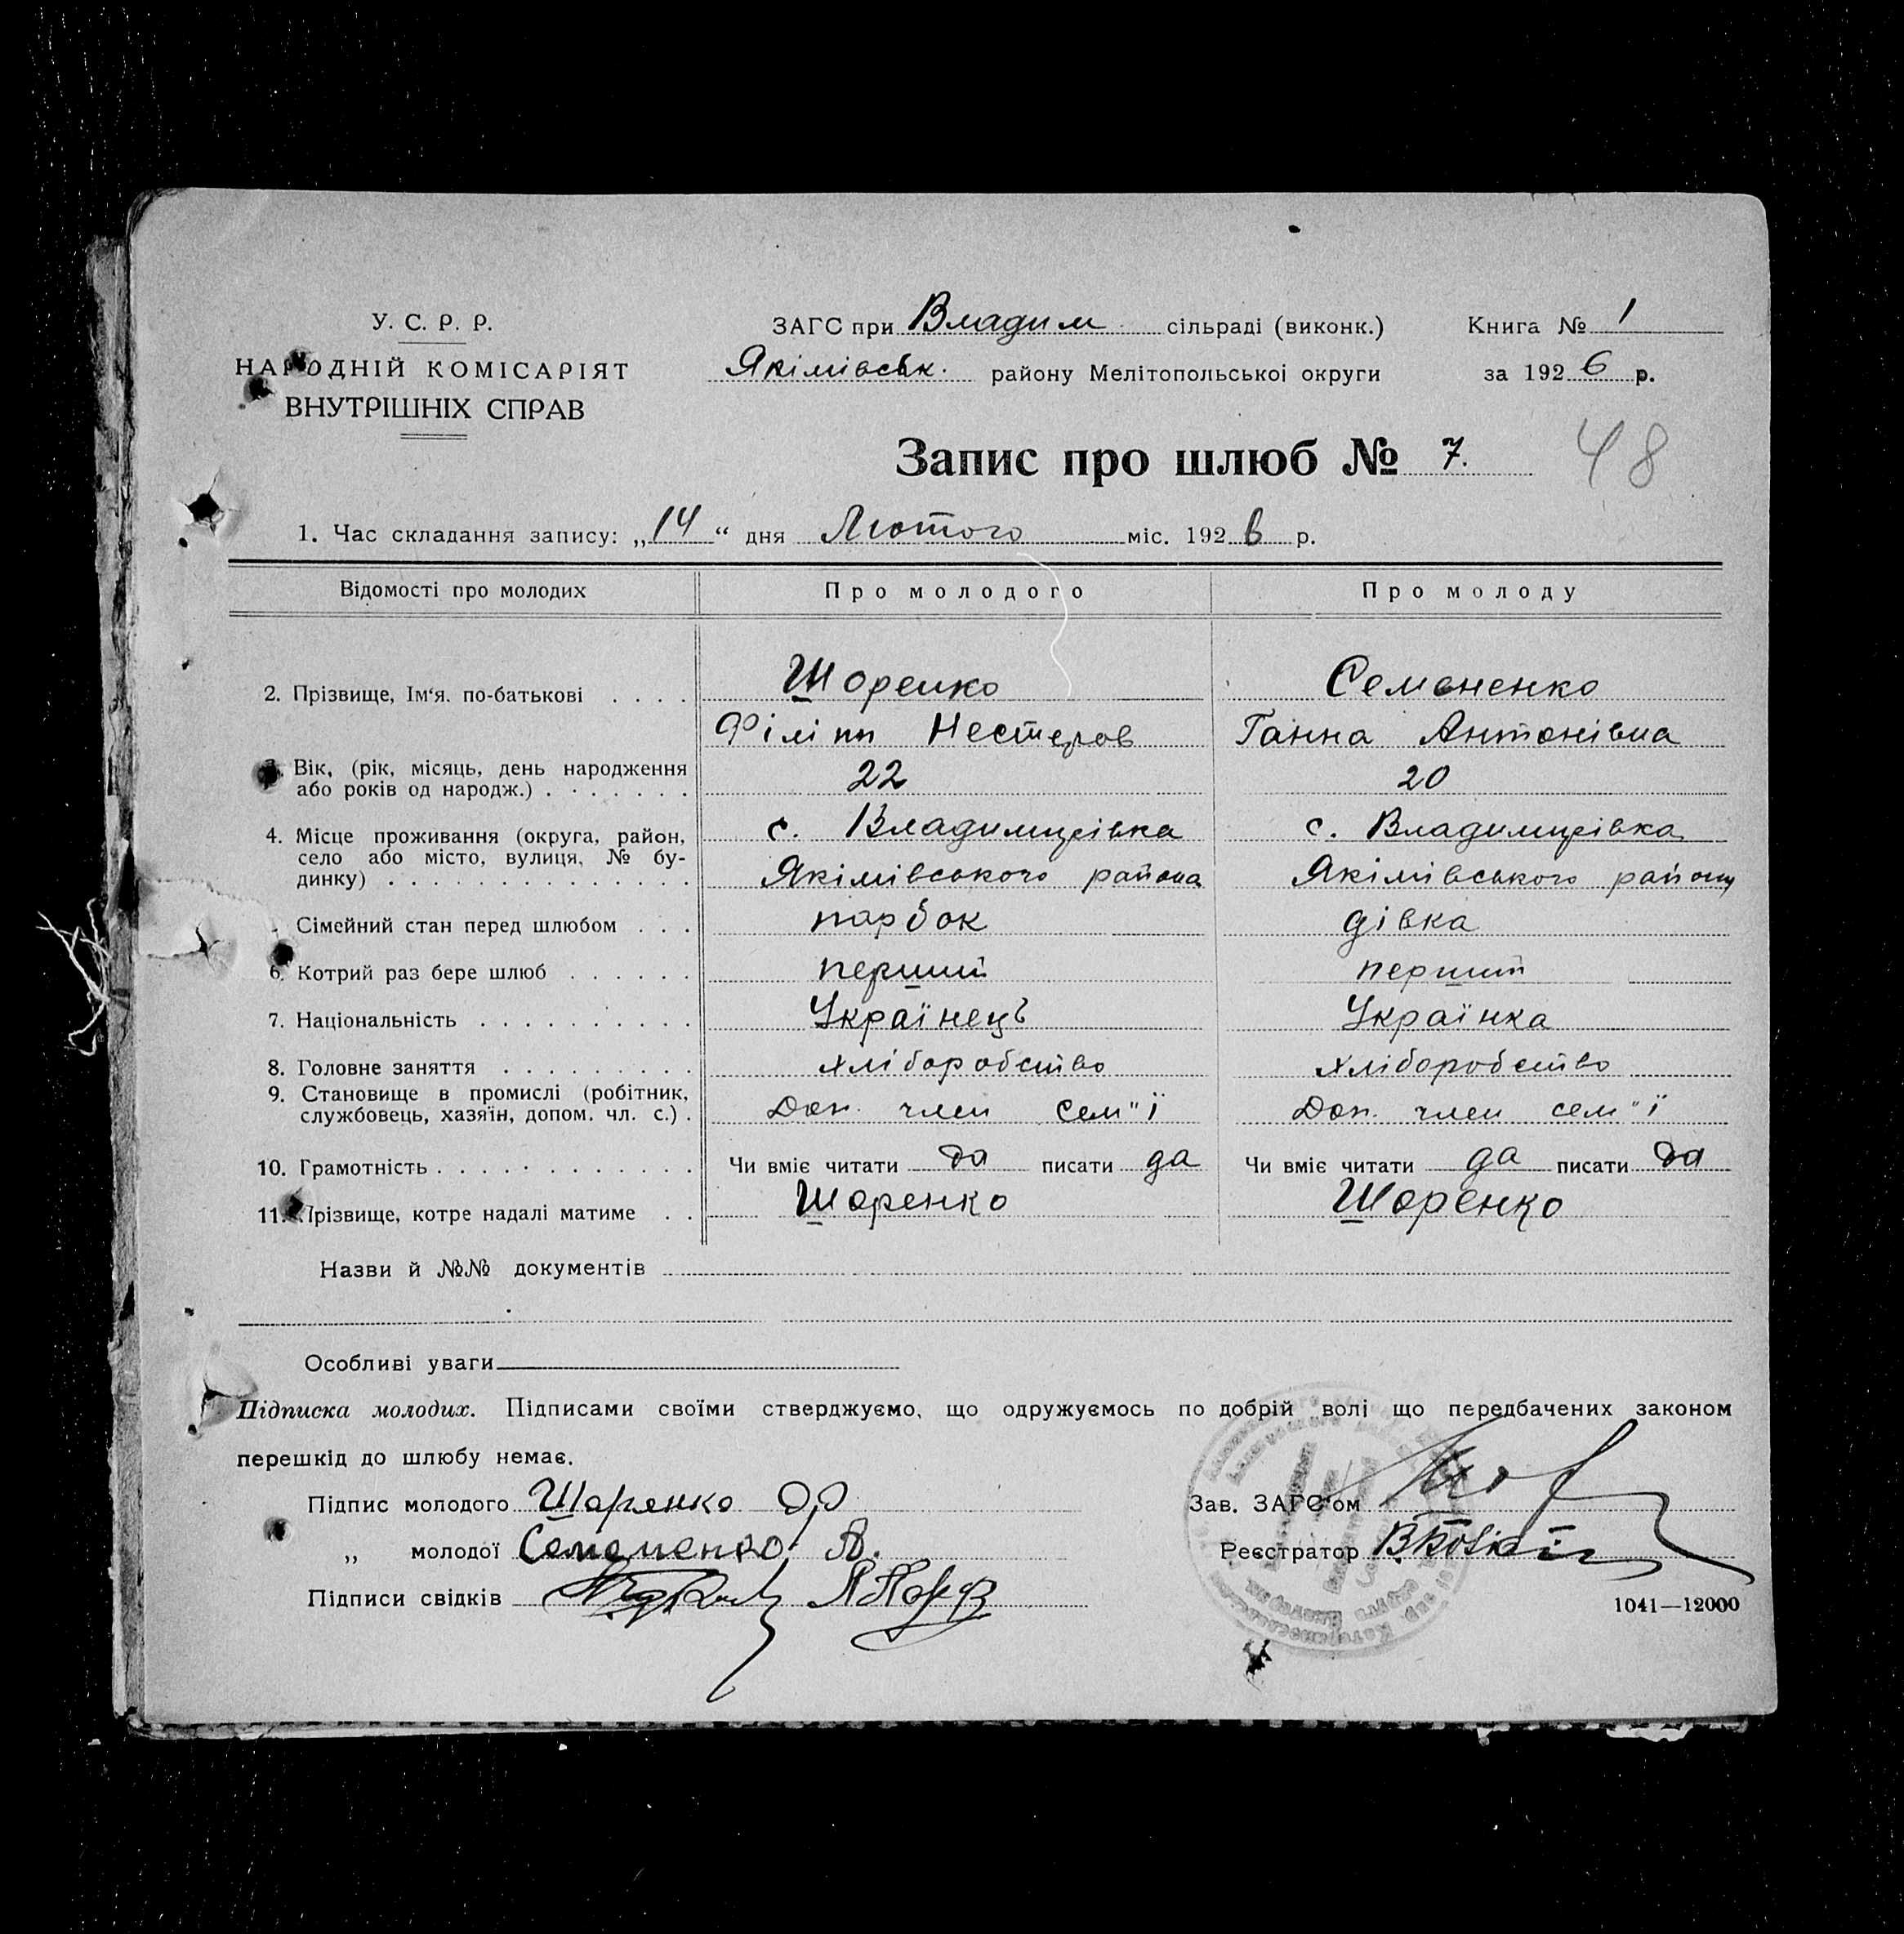 У. С. Р. Р.
НАРОДНІЙ КОМІСАРІЯТ
ВНУТРІШНІХ СПРАВ
ЗАГС при Владим сільраді (виконк.)
Якімівськ. району Мелітопольської округи
Книга № 1
за 1926 р.
Запис про шлюб № 7.
48
1. Час складання запису: „14“ дня Лютого міс. 1926 р.
Відомості про молодих Про молодого Про молоду
2. Прізвище, Ім‘я. по-батькові . . . . Шоренко Семененко
Філіпп Нестеров Ганна Антонівна
3. Вік, (рік, місяць, день народження
або років од народж.) . . . . . . . 22 20
4. Місце проживання (округа, район, с. Владимирівка с. Владимирівка
село або місто, вулиця, № бу-
динку) . . . . . . . . . . . . . . Якімівського района Якімівського району
Сімейний стан перед шлюбом . . . парбок дівка
6. Котрий раз бере шлюб . . . . . . перший перший
7. Національність . . . . . . . . . . Українець Українка
8. Головне заняття . . . . . . . . . хліборобство хліборобство
9. Становище в промислі (робітник,
службовець, хазяїн, допом. чл. с.) . Доп. член сем"ї Доп. член сем"ї
10. Грамотність . . . . . . . . . . . . Чи вміє читати да писати да Чи вміє читати да писати да
11. Прізвище, котре надалі матиме . . Шоренко Шоренко
Назви й №№ документів
Особливі уваги
Підписка молодих. Підписами своїми стверджуємо, що одружуємось по добрій волі що передбачених законом
перешкід до шлюбу немає.
Підпис молодого Шаренко Ф
„ молодої Семененко А.
Підписи свідків
Зав. ЗАГС'ом
Реєстратор
1041—12000